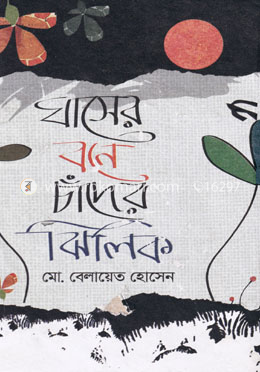 ঘাসের
বনে
চাঁদের
ঝিলিক
মো. বেলায়েত হোসেন